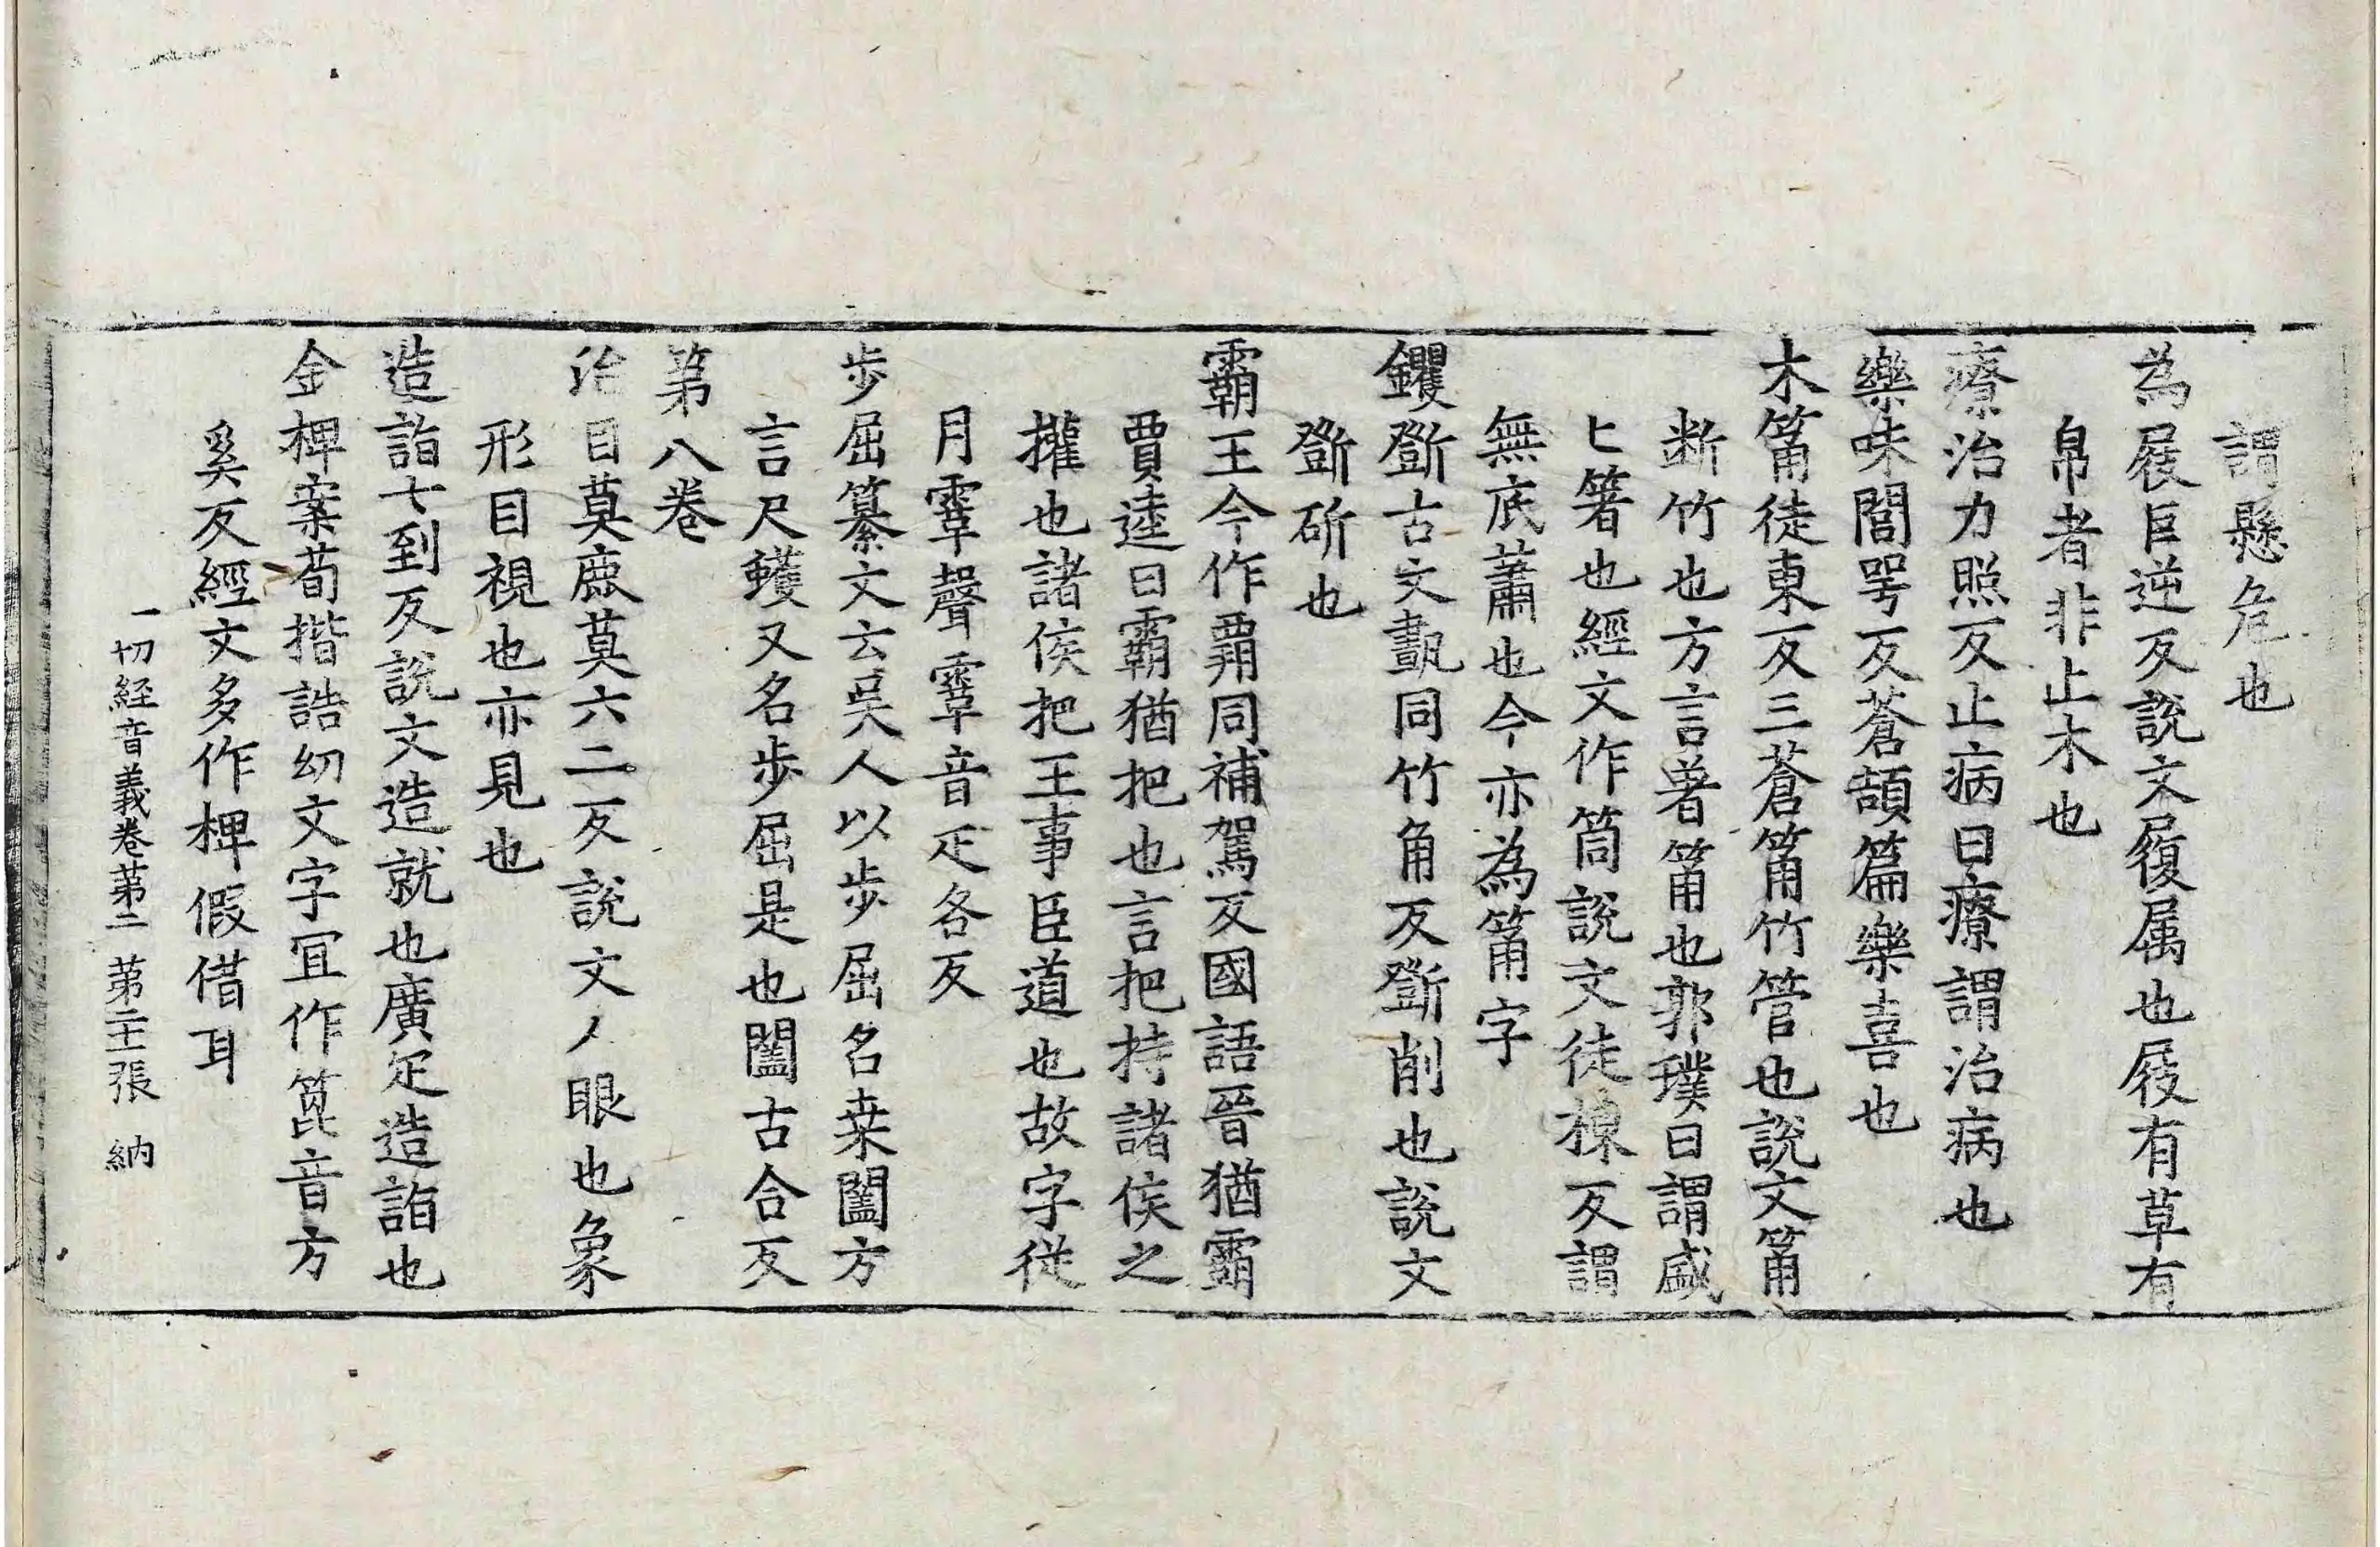 謂懸危也
為屐巨逆反說文履属也屐有草有
帛者非止木也
療治力照反止病曰療謂治病也
樂味閭咢反蒼頡篇樂喜也
木筩徒東反三蒼筩竹管也說文筩
断竹也方言箸筩也郭璞曰謂盛
匕箸也經文作筒說文徒棟反謂
無底蕭也今亦為筩字
钁斲古文斀同竹角反斲削也說文
斲斫也
霸王今作覇同補駕反國語晉猶霸
賈逵曰霸猶把也言把持諸侯之
攉也諸侯把王事臣道也故字従
月䨣聲䨣音疋各反
步屈纂文云吳人以步屈名桒闔方
言尺蠖又名步屈是也闔古合反
第八卷
治目莫鹿莫六二反說文人眼也象
形目視也亦見也
造詣七到反說文造就也廣疋造詣也
金椑案荀揩誥幼文字冝作箆音方
奚反經文多作椑假借耳
一切経音義卷第二 第二十三張 納